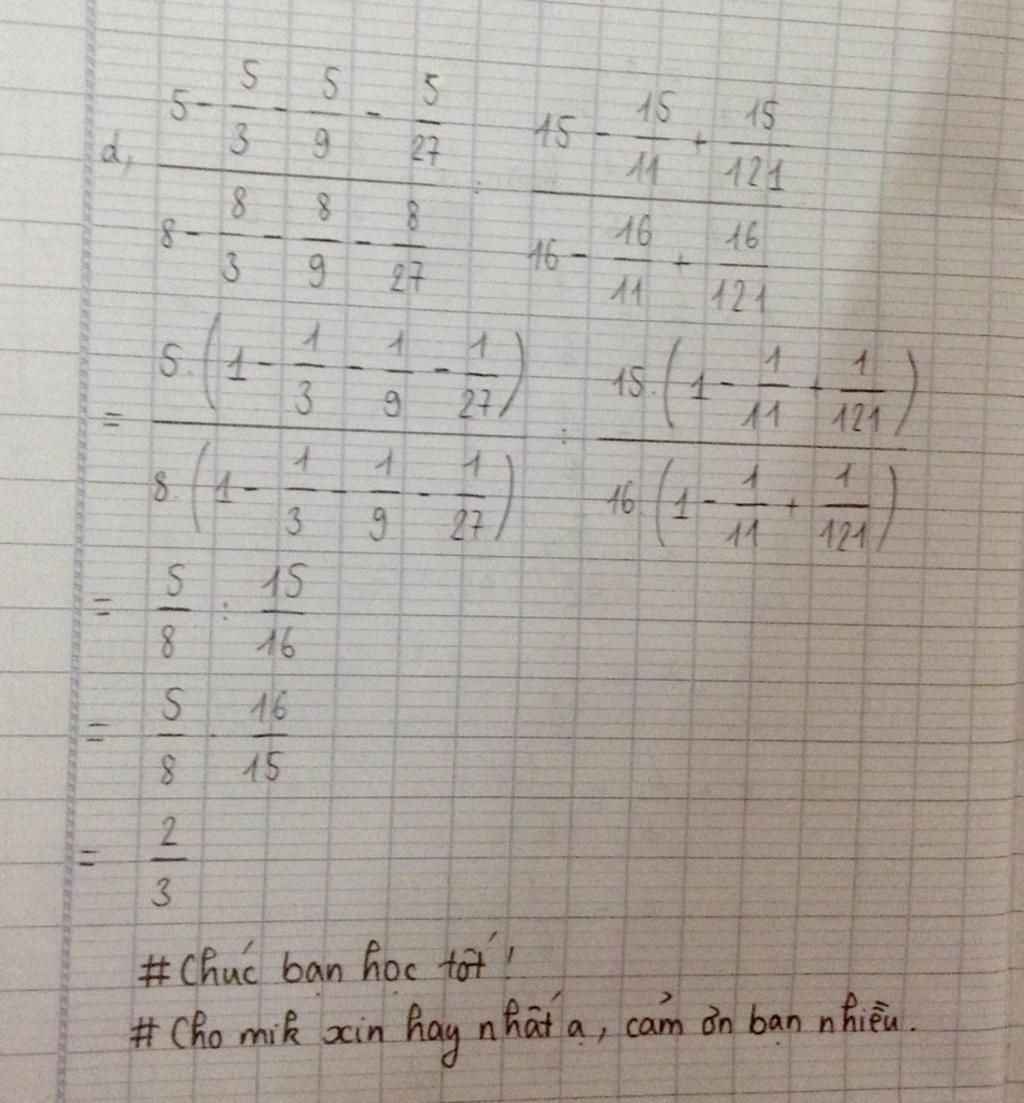 d, (5 - 5/3 - 5/9 - 5/27)/(8 - 8/3 - 8/9 - 8/27) : (15 - 15/11 + 15/121)/(16 - 16/11 + 16/121)
= 5.(1 - 1/3 - 1/9 - 1/27)/8.(1 - 1/3 - 1/9 - 1/27) : 15.(1 - 1/11 + 1/121)/16(1 - 1/11 + 1/121)
= 5/8 : 15/16
= 5/8 . 16/15
= 2/3
# Chúc bạn học tốt!
# Cho mik xin hay nhất ạ, cảm ơn bạn nhiều.